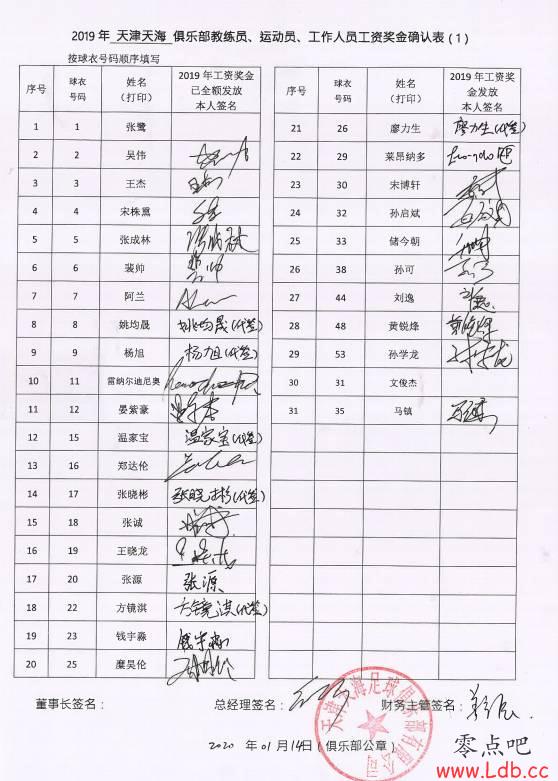 2019年 天津天海 俱乐部教练员、运动员、工作人员工资奖金确认表（1）
按球衣号码顺序填写
序号 球衣号码 姓名（打印） 2019年工资奖金已全额发放本人签名
1 1 张鹭
2 2 吴伟
3 3 王杰
4 4 宋株熏
5 5 张成林
6 6 裴帅
7 7 阿兰
8 8 姚均晟 姚均晟(代签)
9 9 杨旭 杨旭(代签)
10 11 雷纳尔迪尼奥
11 12 晏紫豪
12 15 温家宝 温家宝(代签)
13 16 郑达伦
14 17 张晓彬 张晓彬(代签)
15 18 张诚
16 19 王晓龙
17 20 张源 张源
18 22 方镜淇 方镜淇(代签)
19 23 钱宇淼 钱宇淼
20 25 糜昊伦
序号 球衣号码 姓名（打印） 2019年工资奖金发放本人签名
21 26 廖力生 廖力生(代签)
22 29 莱昂纳多
23 30 宋博轩
24 32 孙启斌
25 33 储今朝
26 38 孙可
27 44 刘逸
28 48 黄锐烽
29 53 孙学龙
30 31 文俊杰
31 35 马镇
董事长签名： 总经理签名： 财务主管签名：
天津天海足球俱乐部有限公司
2020 年 01 月 14 日（俱乐部公章）
零点吧
www.Ldb.cc